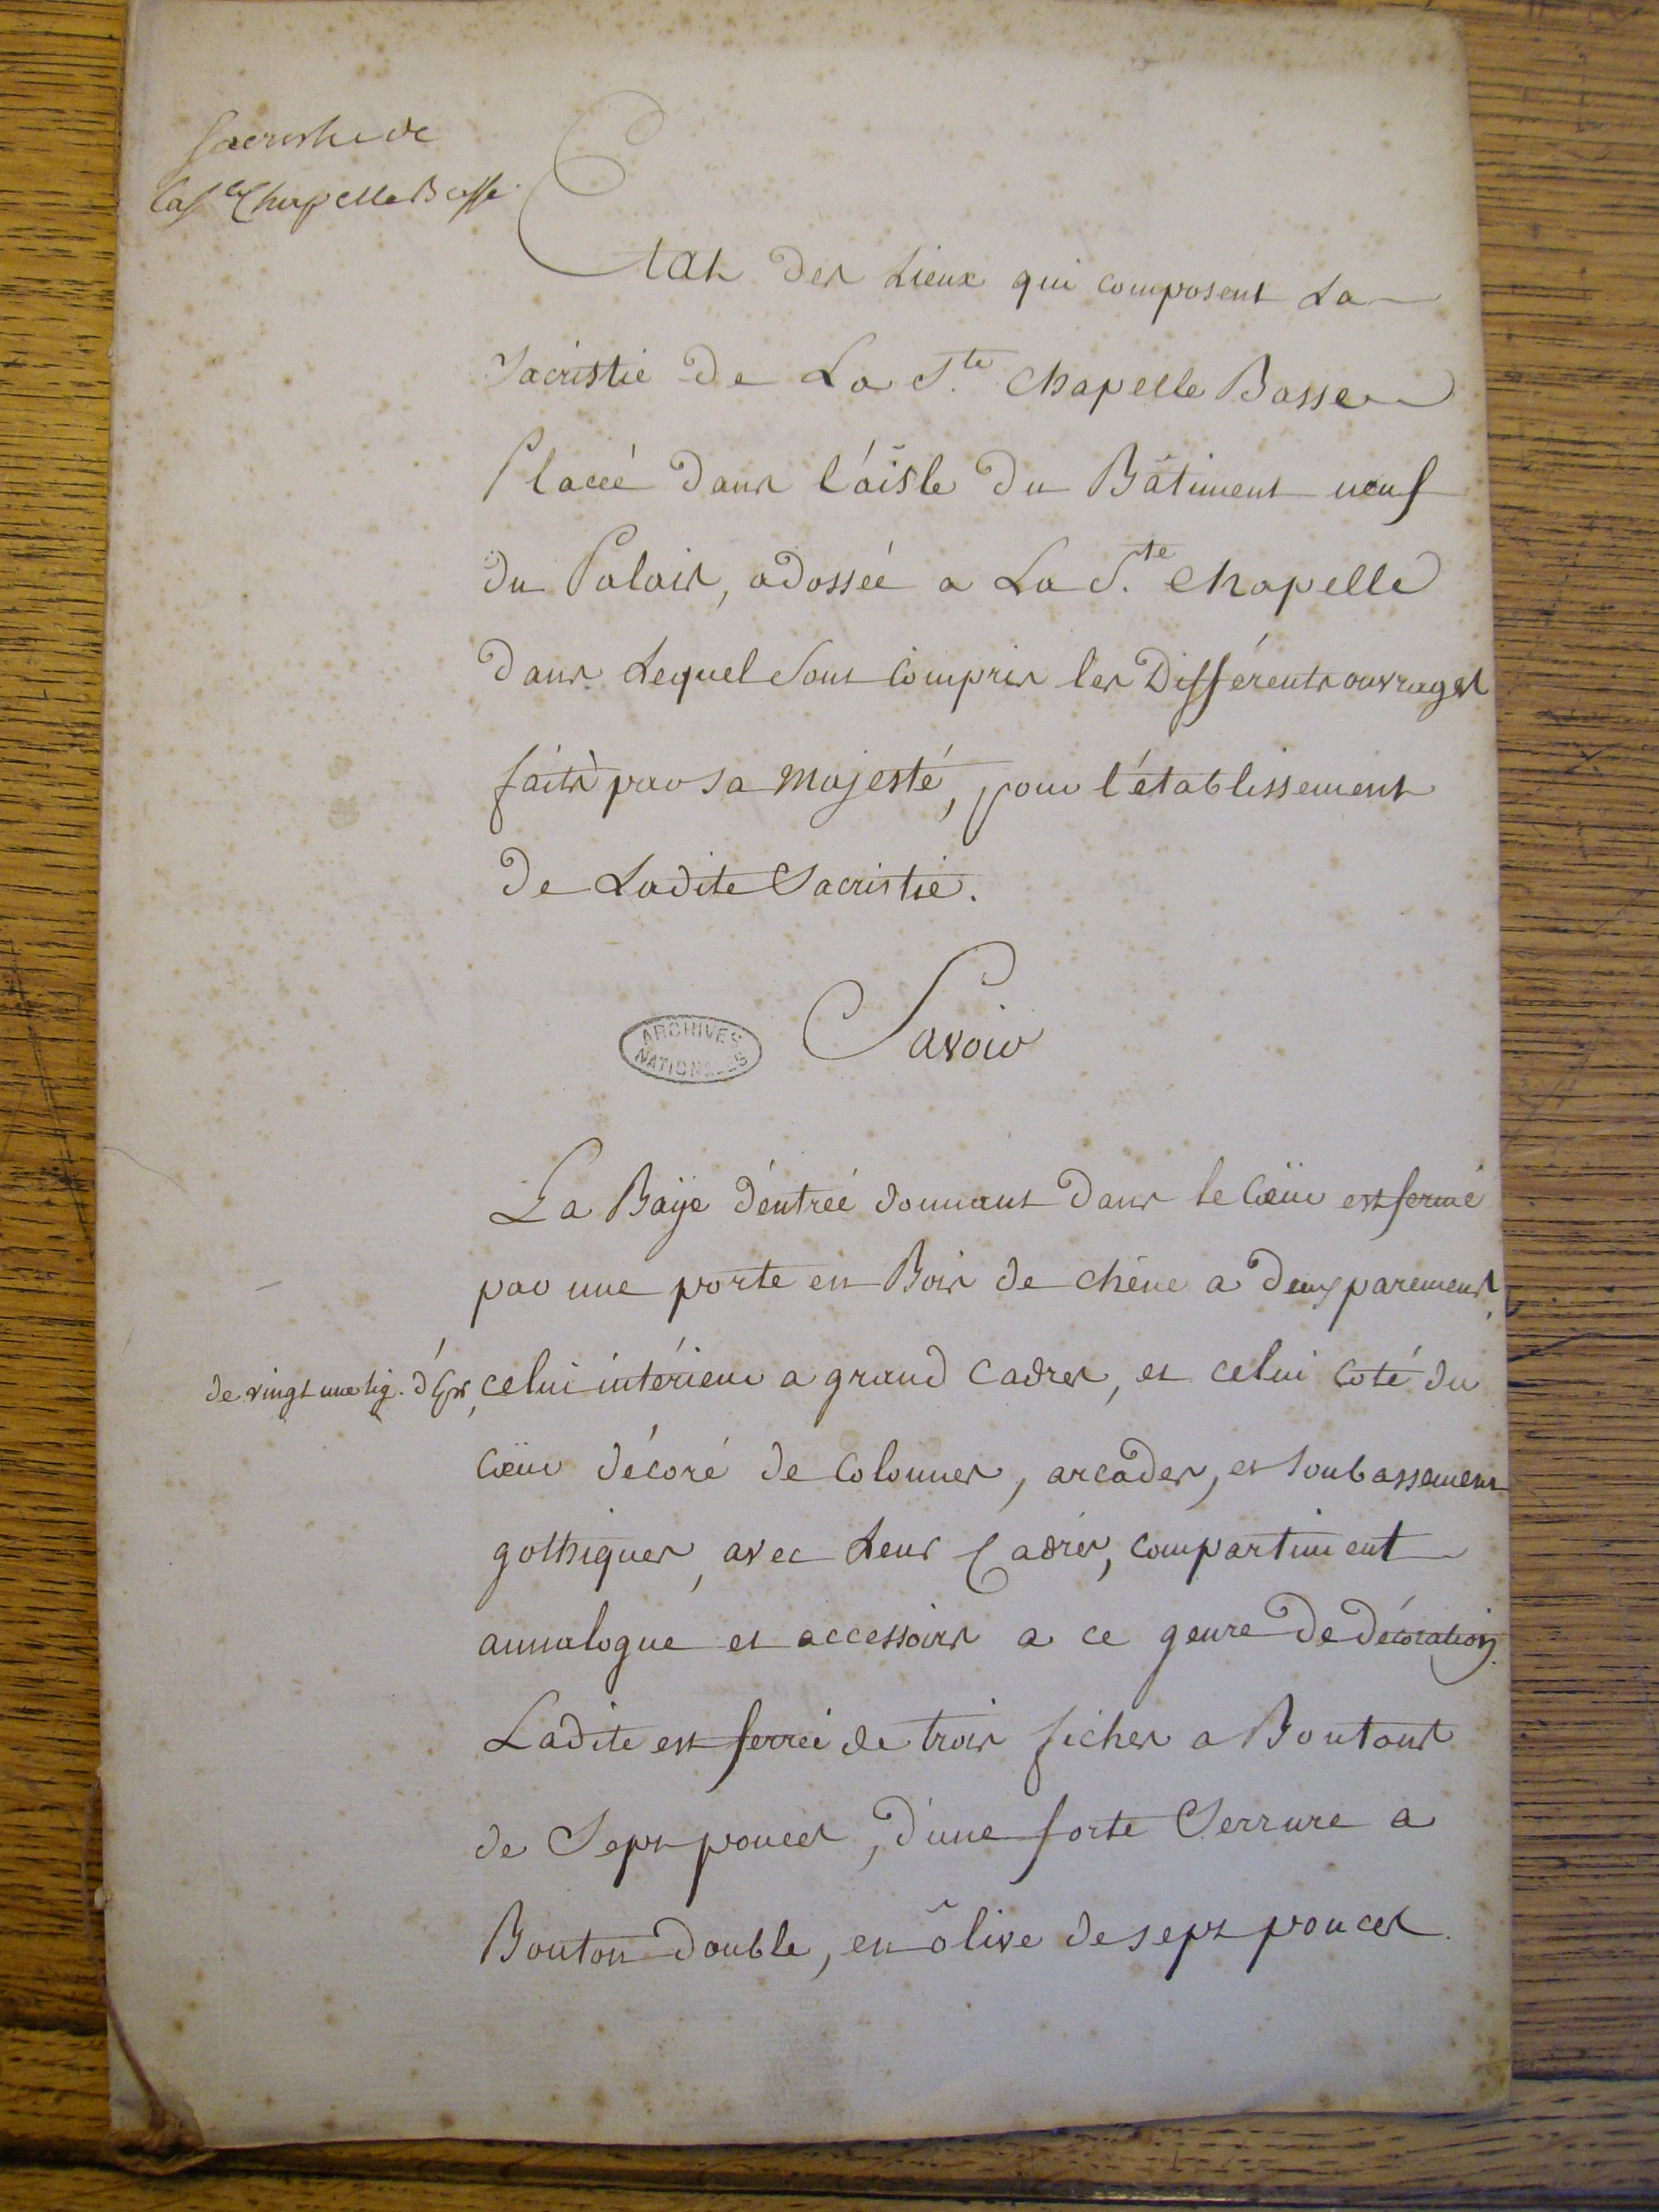 Sacristie de
la Ste Chapelle Basse.
Etat des Lieux qui composent La
Sacristie de La S.te Chapelle Basse
Placeé dans l'áisle du Bâtiment neuf
du Palais, adosseé a La S.te Chapelle
dans Lequel sont compris les Différents ouvrages
faits par sa Majesté, pour l'établissement
de Ladite Sacristie.
ARCHIVES
NATIONALES
Savoir
La Baÿe d'entreé donnant dans le Cœur est fermé
par une porte en Bois de chêne a deux parements,
de vingt une lig. d'Epr, celui intérieur a grand Cadres, et celui coté du
Cœur décoré de Colonnes, arcades, et soubassement
gothiques, avec Leur Cadres, compartiment
annalogue et accessoirs a ce genre De décoration.
Ladite est ferreé de trois fiches a Boutons
de Sept pouces, d'une forte Serrure a
Bouton double, en olive de sept pouces.